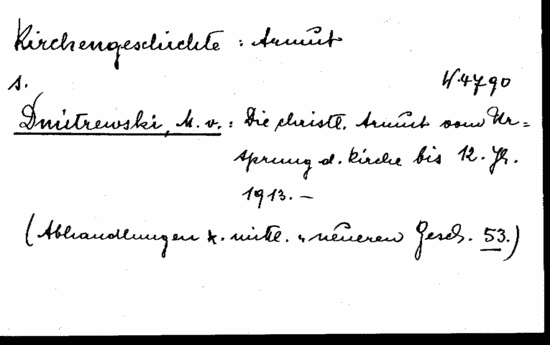 Kirchengeschichte : Armut
s.
W4790
Dmitrewski, M. v. : Die christl. Armut vom Ur=
sprung d. Kirche bis 12. Jh.
1913. —
(Abhandlungen z. mittl. u neueren Gesch. 53.)